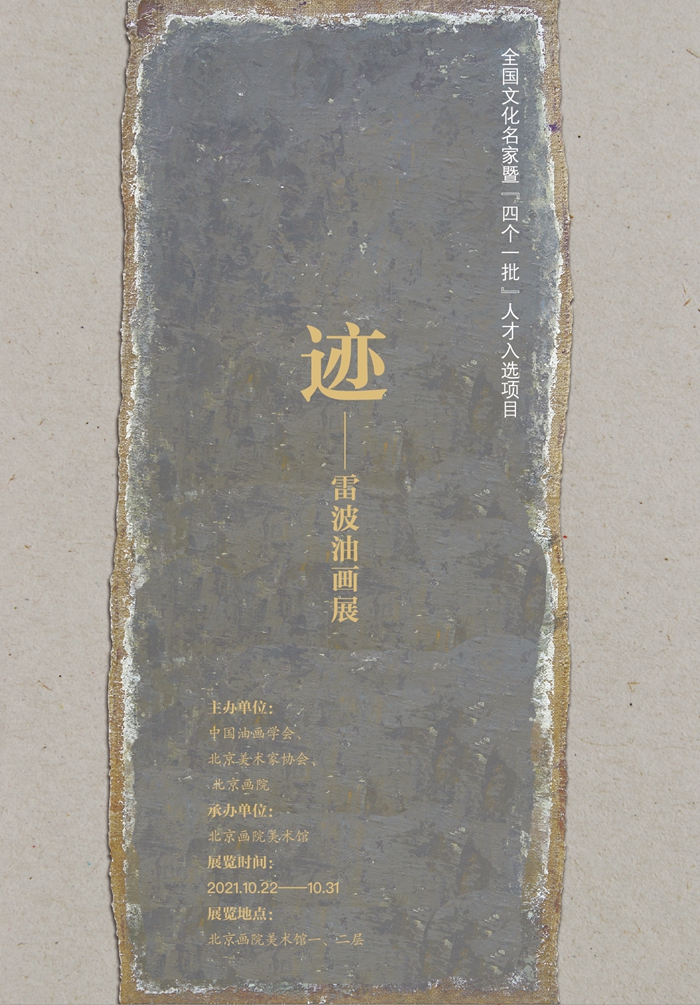 全国文化名家暨『四个一批』人才入选项目
迹
——雷波油画展
主办单位：
中国油画学会、
北京美术家协会、
北京画院
承办单位：
北京画院美术馆
展览时间：
2021.10.22——10.31
展览地点：
北京画院美术馆一、二层